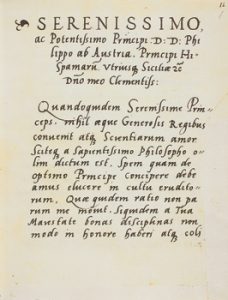 SERENISSIMO,
ac Potentissimo Principi D: D: Phi
lippo ab Austria. Principi Hi-
spamarū. Vtriusq Siciliæ &c
Dnō meo Clementiss:
Quandoquidem Serenissime Prin
ceps. nihil æque Generosis Regibus
convenit atq Scientiarum amor
Sciteq a Sapientissimo Philosopho o
lim dictum est. Spem quam de
optimo Principe concipere debe
amus elucere in cultu erudito
rum. Quæ quidem ratio non pa
rum me movit. Siquidem a Tua
Maiestate bonas disciplinas non
modo in honore haberi atq coli